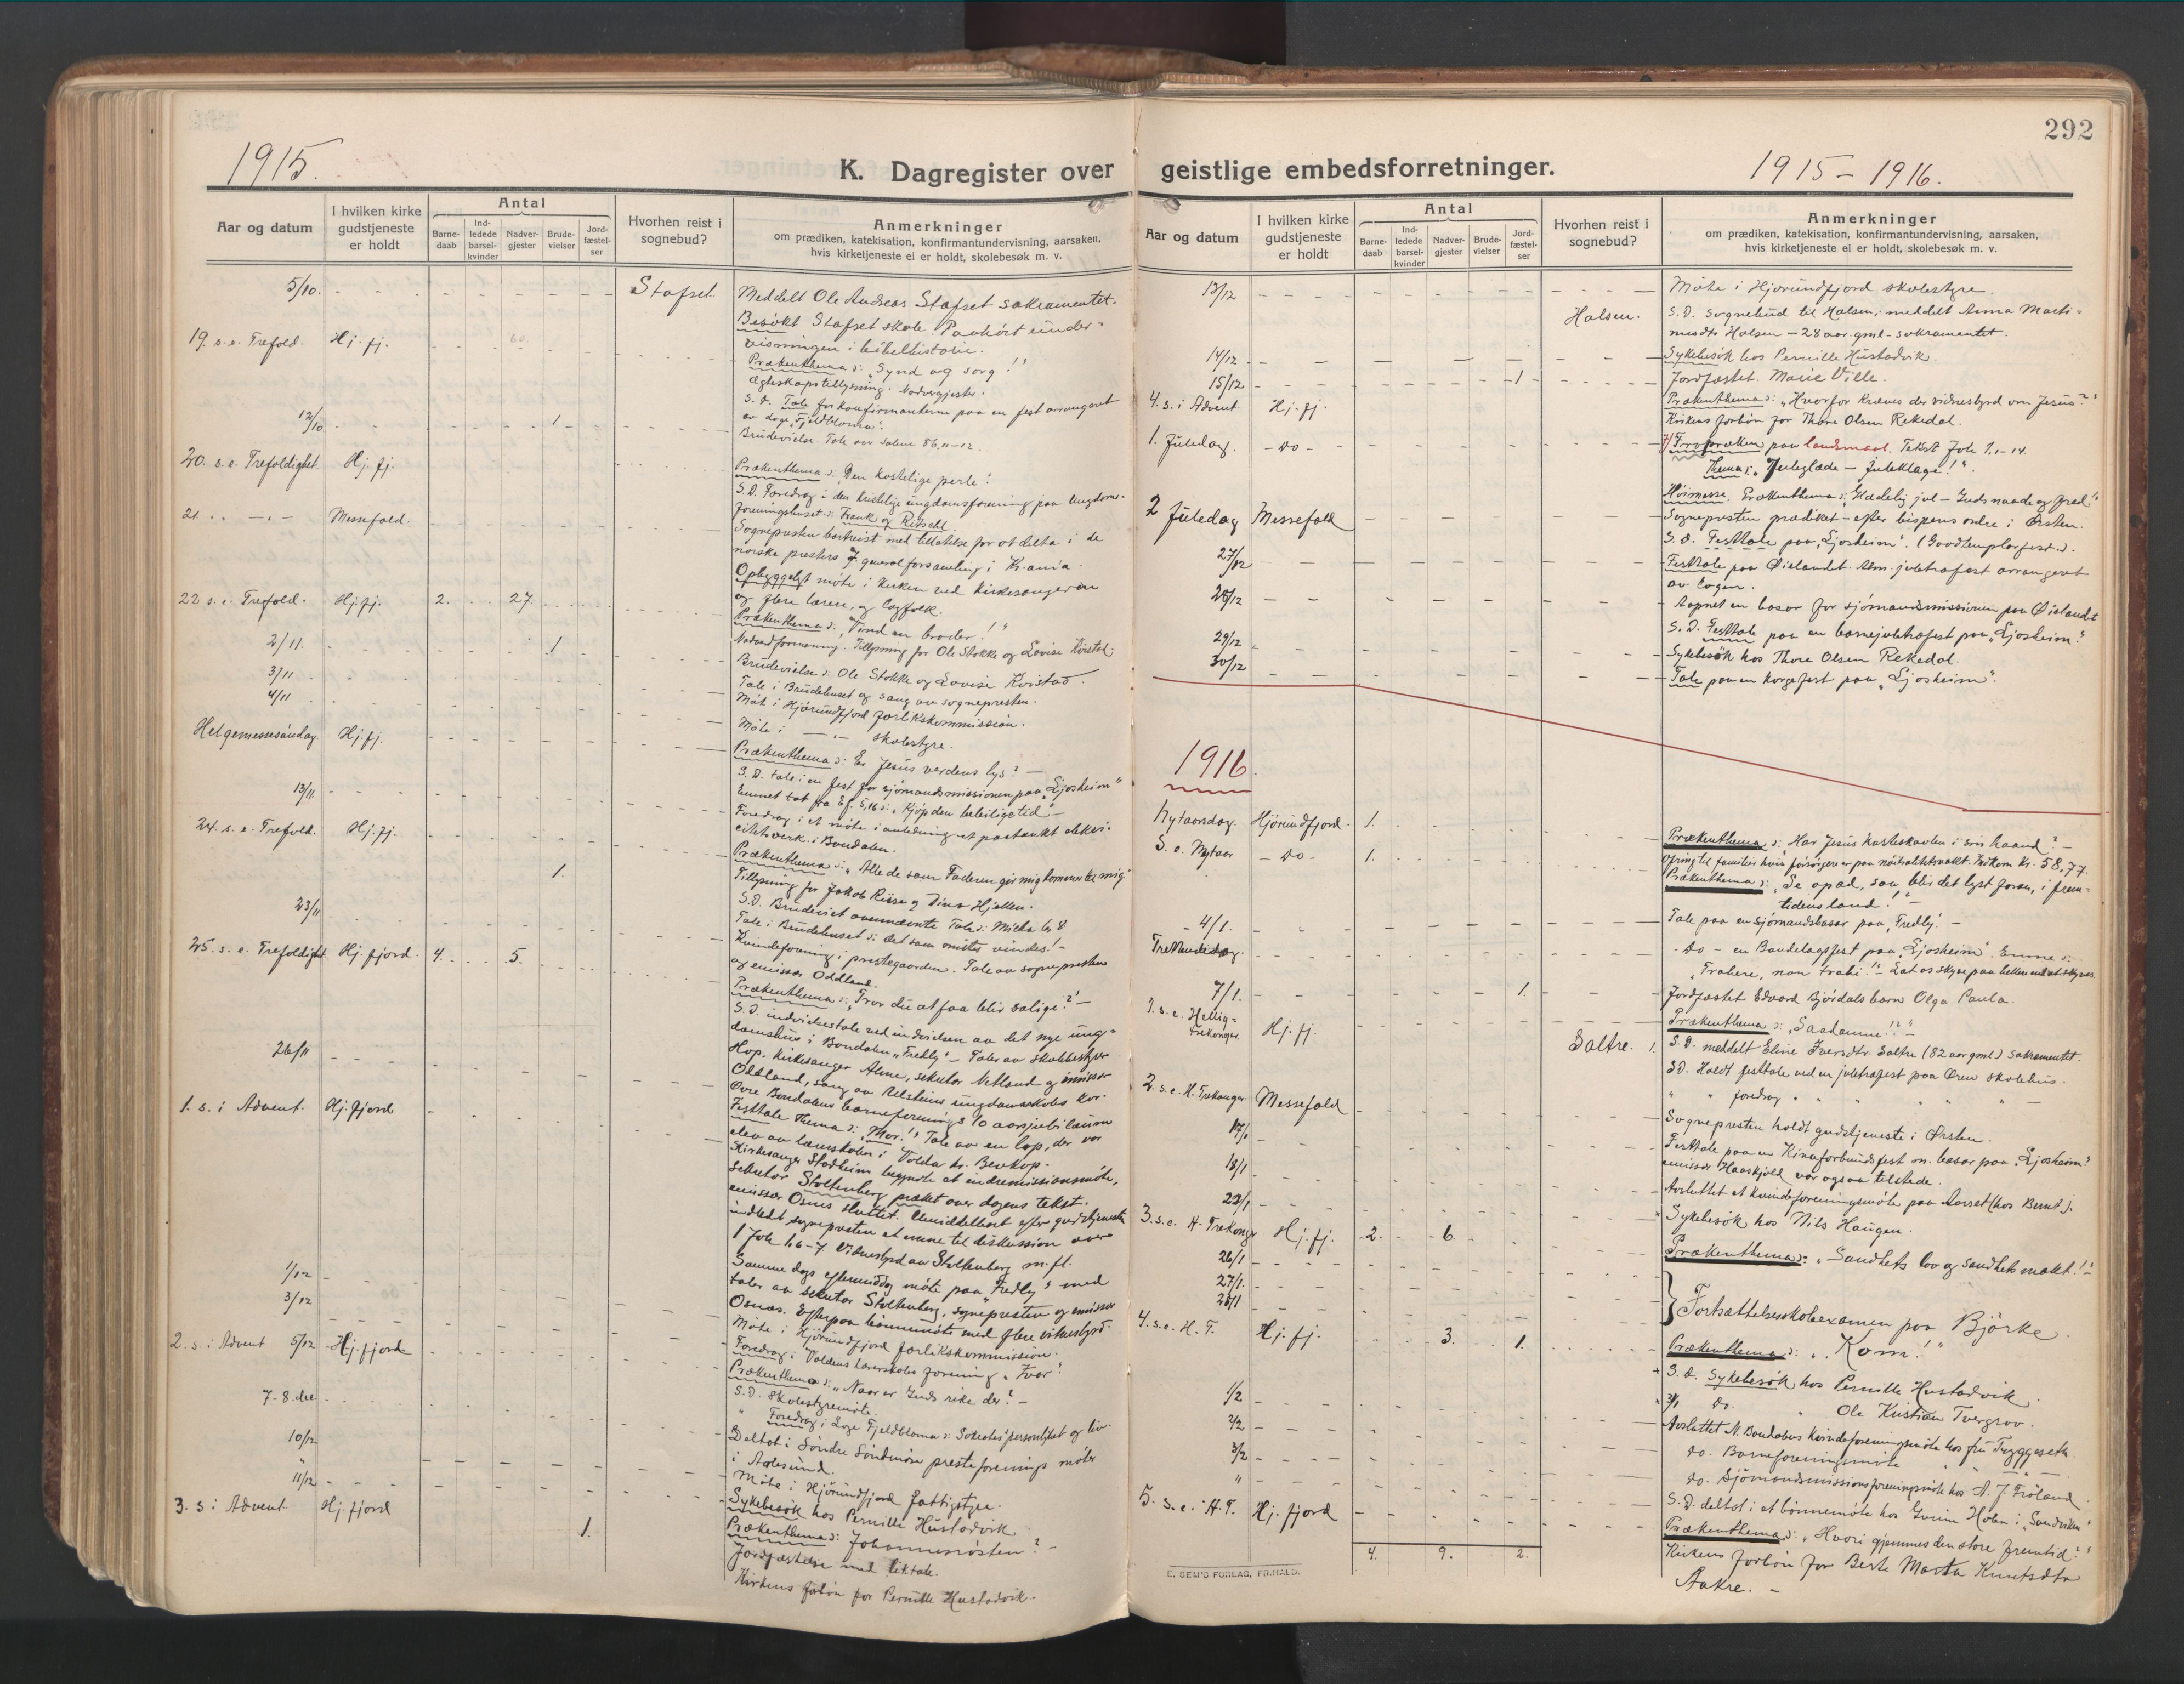 1915.
K. Dagregister over
Aar og datum
I hvilken kirke gudstjeneste er holdt
Antal
Barnedaab
Indledede barselkvinder
Nadvergjester
Brudevielser
Jordfæstelser
Hvorhen reist i sognebud?
Anmerkninger
om prædiken, katekisation, konfirmantundervisning, aarsaken,
hvis kirketjeneste ei er holdt, skolebesøk m. v.
5/10.
Stafset
Meddelt Ole Andreas Stafset sakramentet.
Besökt Stafset skole. Paahört under-
visningen i bibelhistorie.
19. s. e. Trefold. Hj. fj. 60.
Prækenthema: "Synd og sorg!"
Ægteskapstillysning. Nadvergjester.
S. D. Tale for konfirmanterne paa en fest arrangeret
av loge "Fjeldblomen".
12/10 1
Brudevielse. Tale over Salme 86, 11-12.
20. s. e. Trefoldighet. Hj. fj.
Prækenthema: Den kostelige perle!
S. D. Foredrag i den kristelige ungdomsforening paa Ungdoms-
foreningshuset: Frank og Ritschl.
21. " — " — Messefald.
Sognepresten bortreist med tillatelse for at delta i de
norske presters generalforsamling i Kr.ania.
Opbyggeligt möte i kirken ved kirkesangeren
og flere lærere, og lægfolk.
22 s. e. Trefold. Hj. fj. 2. 27
Prækenthema: "Vind en broder!"
Tillysning for Ole Stokke og Lovise Kvistad.
2/11. 1
Brudevielse: Ole Stokke og Lovise Kvistad.
Tale i Brudehuset og sang av sognepresten.
3/11
Möt i Hjörundfjord forlikskommission.
4/11
Möte i — " — skolestyre.
Helgemessesöndag. Hj. fj.
Prækenthema: Er Jesus verdens lys? —
S. D. tale i en fest for sjömandsmissionen paa "Ljosheim"
Emnet tat fra Ef. 5,16: "Kjöp den beleilige tid"
13/11.
Foredrag i et möte i anledning et paatænkt elektri-
citetsverk i Bondalen.
24. s. e. Trefold. Hj. fj. 1.
Prækenthema: "Alle de som Faderen gir mig kommer til mig"
Tillysning for Jakob Riise og Dina Hjellen.
S. D. Brudeviet ovennævnte Tale: Micha 6, 8.
Tale i Brudehuset: Det som mistes vindes! —
23/11
Kvindeforening i prestegaarden. Tale av sognepresten
og emissær Oddland.
25. s. e. Trefoldighet Hj. fjord. 4. 5.
Prækenthema: "Tror du at faa blir salige?" —
S. D. indvielsestale ved indvielsen av det nye ung-
domshus i Bondalen "Fredly" — Taler av skolebestyrer
Hop, kirkesanger Aklne, sekretær Netland og emissær
Oddland, sang av
26/11
Övre Bondalens barneforenings 10 aarsjubilæum
Festtale thema: "Mor!" Tale av en lap, der var
elev av lærerskolen i Volda hr. Bevkop.
1. s. i Advent. Hj. fjord
Kirkesanger Stadheim begyndte et indremissionsmöte,
sekretær Stoltenberg præket over dagens tekst.
emissær Osnes sluttet. Umiddelbart efter gudstjeneste
indledt sognepresten et emne til diskussion over
1 Joh 1,6-7. Vidnesbyrd av Stoltenberg m. fl.
Samme dags eftermiddag möte paa "Fredly" med
taler av sekretær Stoltenberg, sognepresten og emissær
Osnes. Efterpaa bönnemöte med flere vidnesbyrd.
1/12
Möte i Hjörundfjord forlikskommission.
3/12
Foredrag i Voldens lærerskoles forening "Ivar!
2. s. i Advent 5/12 Hj. fjord
Prækenthema: "Naar er Guds rike der?" —
S. D. Skolestyremöte.
" Foredrag i Loge Fjeldbloma: Sokrates' personlighet og liv.
7-8. dec.
Deltat i Söndre Söndmöre presteforenings möter
i Aalesund.
10/12
Möte i Hjörundfjord fattigstyre.
11/12
Sykebesök hos Pernille Hustadvik
3. s. i Advent. Hj. fjord 1.
Prækenthema: Johannesrösten? —
Jordfæstelse med liktale.
Kirkens forbön for Pernille Hustadvik.
292
geistlige embedsforretninger.
1915 - 1916.
Aar og datum
I hvilken kirke gudstjeneste er holdt
Antal
Barnedaab
Indledede barselkvinder
Nadvergjester
Brudevielser
Jordfæstelser
Hvorhen reist i sognebud?
Anmerkninger
om prædiken, katekisation, konfirmantundervisning, aarsaken,
hvis kirketjeneste ei er holdt, skolebesøk m. v.
13/12
Möte i Hjörundfjord skolestyre.
Halsen.
S. D. Sognebud til Halsen, meddelt Anna Marti-
nusdtr Halsen — 28 aar gml — sakramentet.
14/12
Sykebesök hos Pernille Hustadvik.
15/12 1
Jordfæstet Marie Ville.
4. s. i Advent Hj. fj.
Prækenthema: "Hvorfor kræves der vidnesbyrd om Jesus?"
Kirkens forbön for Thore Olsen Rekedal.
1. Juledag. — Do —
Fropræken paa landsmaal. Tekst Joh 1, 1-14.
Thema: "Juleglæde — Juleklage!"
Höimesse. Prækenthema: Glædelig jul — Guds naade og fred!"
2 Juledag Messefald
Sognepresten prædiket — efter bispens ordre i Ørsten.
S. D. Festtale paa "Ljosheim". (Goodtemplarfest).
27/12
Festtale paa Øielandet. Alm. juletræfest arrangeret
av logen.
28/12
Aapnet en basar for sjömandsmissionen paa Øielandet
S. D. Festtale paa en barnejuletræfest paa "Ljosheim"
29/12
Sykebesök hos Thore Olsen Rekedal.
30/12
Tale paa en korgefest paa "Ljosheim".
1916.
Nytaarsdag. Hjörundfjord. 1.
Prækenthema: Har Jesus kasteskovlen i sin haand? —
Ofring til familier hvis forsörgere er paa nöitralitetsvakt. Indkom Kr. 58,77.
S. e. Nytaar — Do — 1.
Prækenthema: "Se opad, saa blir det lyst foran, i frem-
tidens land!" —
4/1.
Tale paa en sjömandsbasar paa "Fredly". —
Trettendedag.
— Do — en Bondelagsfest paa "Ljosheim". Emne:
"Trahere, non trahi!" — Lat os skyve paa hellere end at skyves.
7/1. 1.
Jordfæstet Edvard Björdals barn Olga Paula.
1. s. e. Hellig-
Trekonger Hj. fj.
Prækenthema: "Saadanne!?" —
Saltre. 1.
S. D. meddelt Eline Iversdtr. Saltre (82 aar gml) sakramentet.
S D. Holdt festtale ved en juletræfest paa Ören skolehus.
" " foredrag " " " " —
2 s. e. H. Trekonger Messefald
Sognepresten holdt gudstjeneste i Ørsten.
17/1
Festtale paa en Kinaforbundsfest m. basar paa "Ljosheim"
emissær Haaskjold var ogsaa tilstede.
18/1
Avsluttet et kvindeforeningsmöte paa Aarset (hos Bernt).
22/1
Sykebesök hos Nils Haugen.
3. s. e. H. Trekonger Hj. fj. 2. 6
Prækenthema: "Sandhets lov og sandhets makt!" —
26/1
27/1.
28/1
Fortsættelsesskoleexamen paa Björke.
4. s. e. H. T. Hj. fj. 3. 1.
Prækenthema: "Kom!"
S. D. Sykebesök hos Pernille Hustadvik
Do. " Ole Kristian Tvergrov.
1/2
Avsluttet N. Bondalens kvindeforeningsmöte hos fru Tryggeseth.
2/2
Do. Barneforeningsmöte " — " —
3/2
Do. Sjömandsmissionsforeningsmöte hos A. J. Fröland
"
S. D. deltat i et bönnemöte hos Gurine Holen i "Sandviken"
5. s. e. H. T. Hj. fjord
Prækenthema: "Hvori gjemmes den store fremtid?"
Kirkens forbön for Berte Marta Knutsdtr
Aakre. —
4. 9. 2.
E. SEM'S FORLAG, FR.HALD.